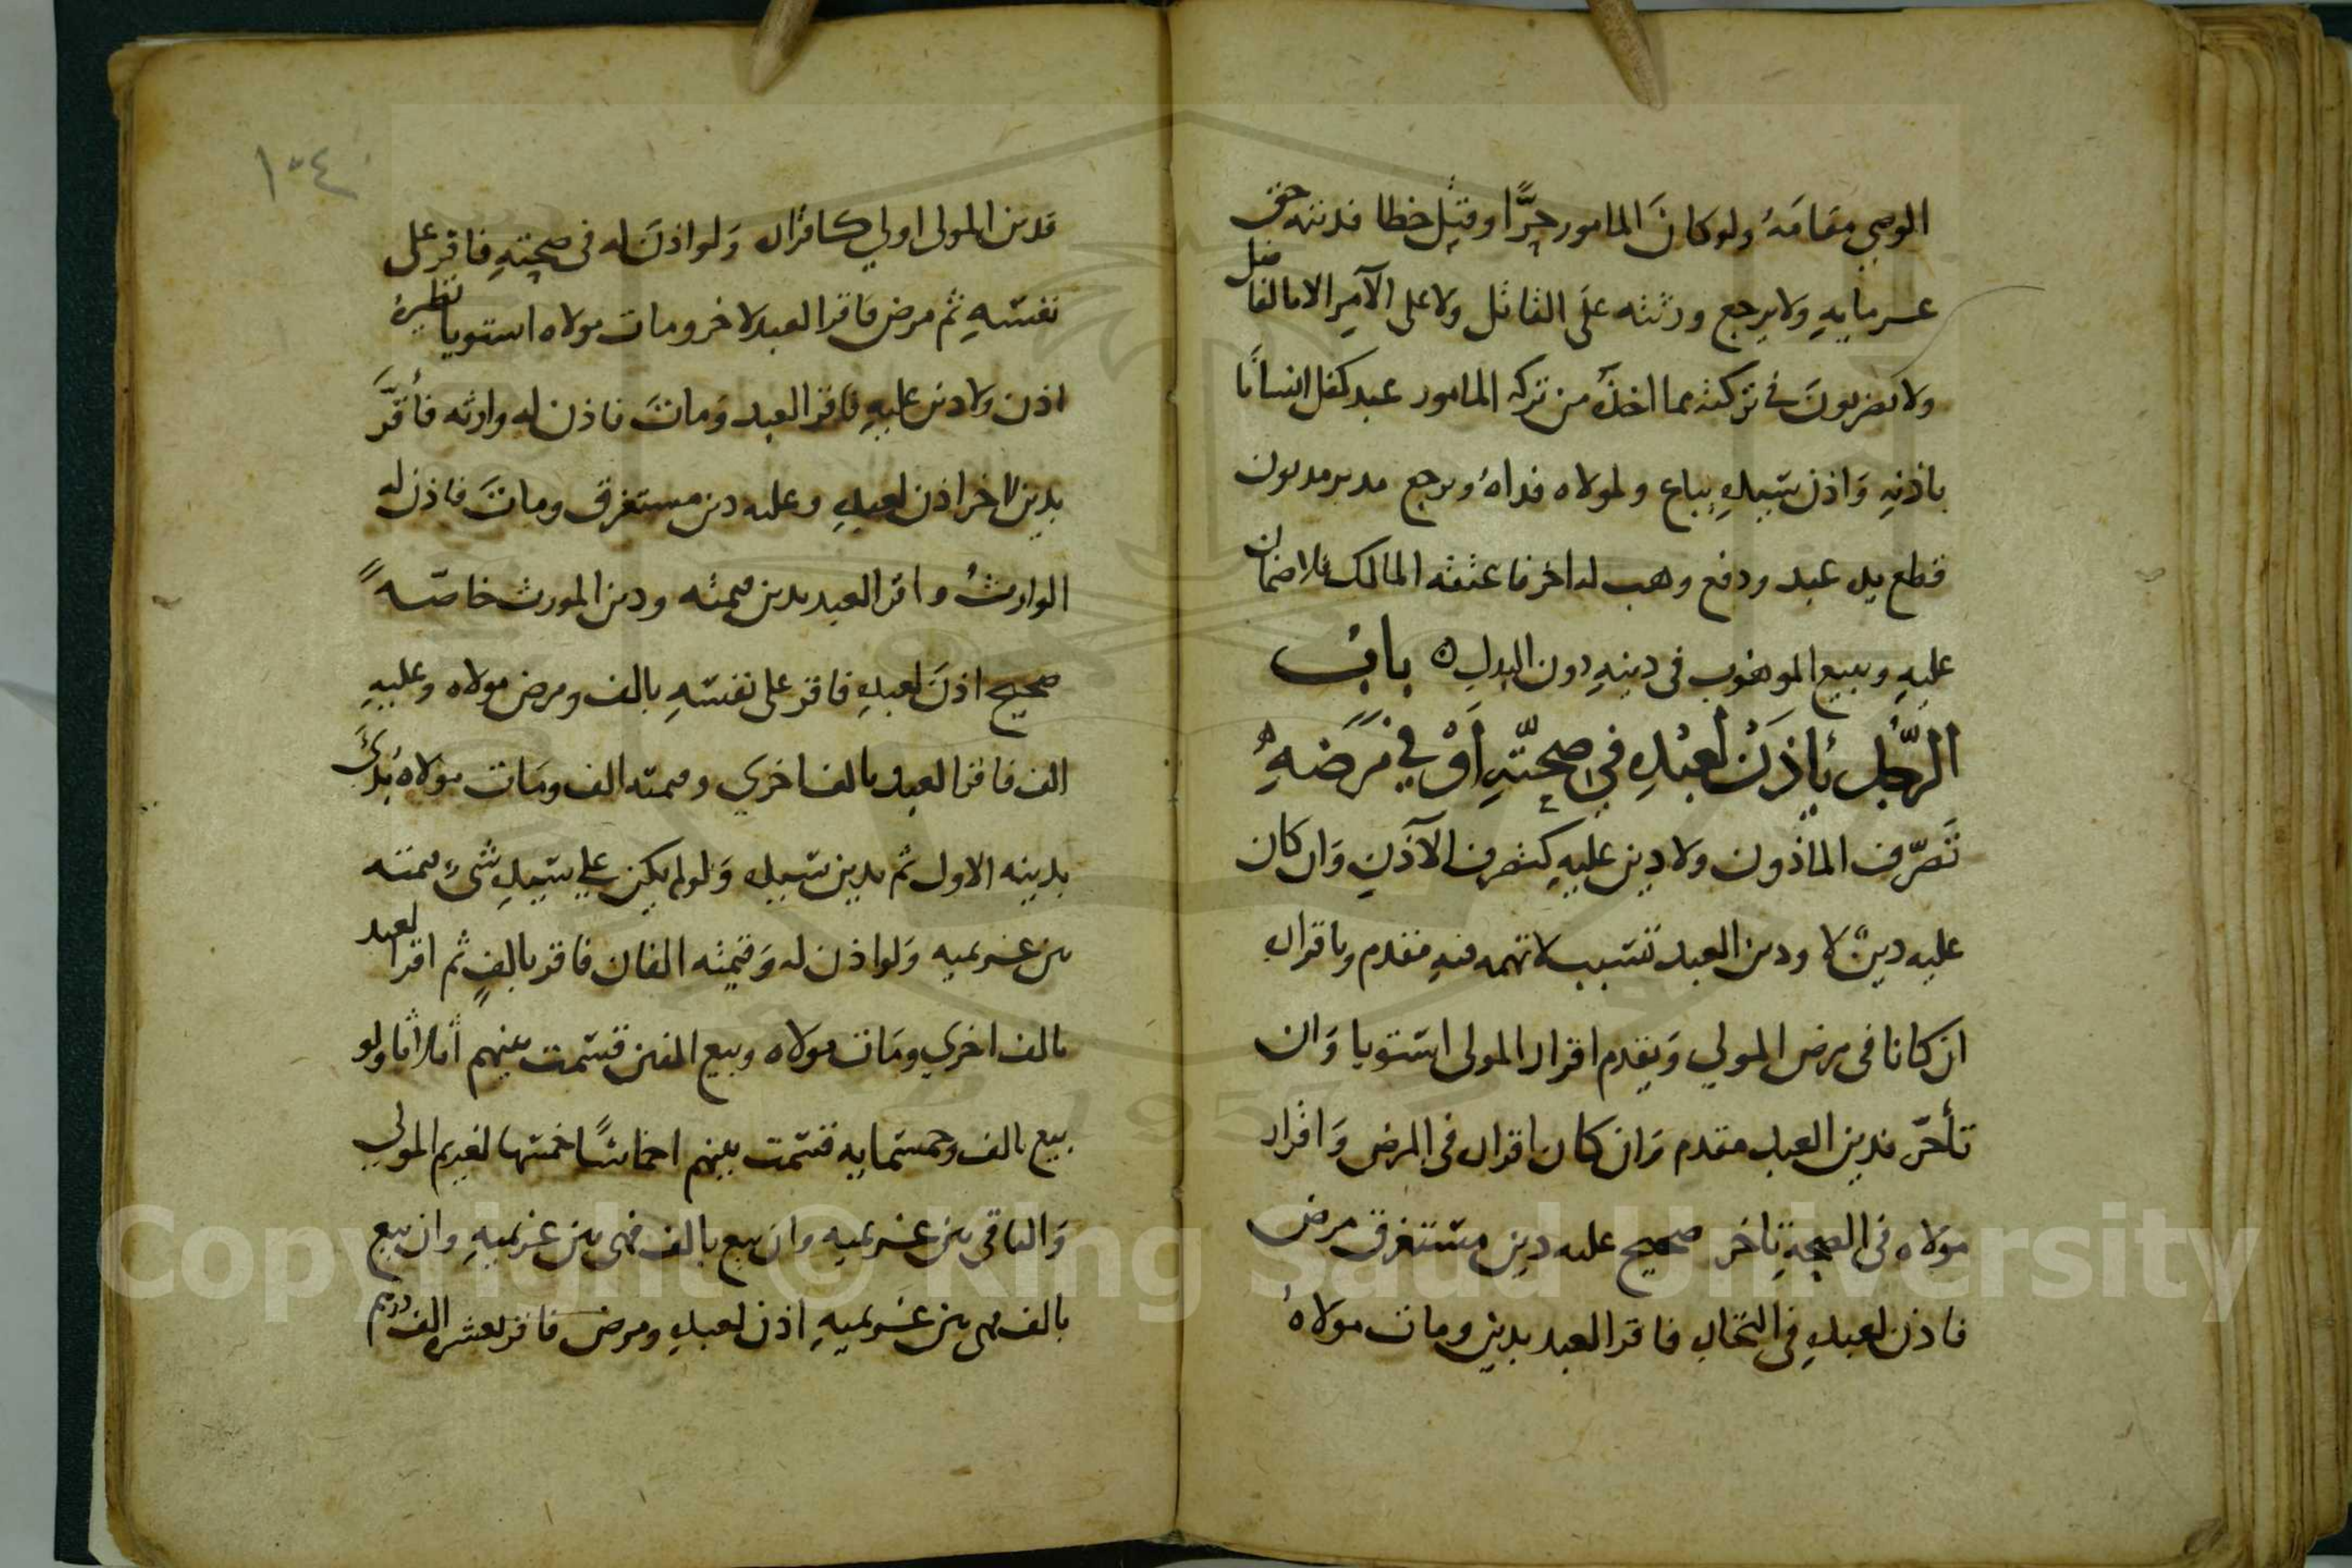 الوصي مقامه ولو كان المامور حرًّا وقتل خطا فديته حق
غرمايه ولا يرجع ورثته على القاتل ولا على الآمر الا مالفاضل
ولا يضربون في تركته بما اخذ من تركه المامور عبد كفل انسانا
باذنه واذن سيده يباع ولمولاه فداه ويرجع مدبر مديون
قطع يد عبد ودفع وهب له اخر فاعتقه المالك فلا ضمان
عليه وبيع الموهوب في دينه دون البدل ه باب
الرَّجل يأذن لعبده في صحته أو في مرضه
تصرّف الماذون ولا دين عليه كتصرف الآذن وان كان
عليه دين لا ودين العبد بسبب لا تهمه فيه مقدم وباقرار
ان كانا في مرض المولي وتقدم اقرار المولى استويا وان
تأخّر فدين العبد مقدم وان كان اقرار في المرض واقرار
مولاه في الصحة تاخر صحيح عليه دين مستغرق مرض
فاذن لعبده في التجاره فاقر العبد بدين ومات مولاه
١٠٤
فدين المولى اولي كاقراره ولو اذن له في صحته فاقر على
نفسه ثم مرض فاقر العبد لاخر ومات مولاه استويا نظيره
اذن ولا دين عليه فاقر العبد ومات فاذن له وارثه فأقرّ
بدين لاخر اذن لعبده وعليه دين مستغرق ومات فاذن له
الوارث واقر العبد بدين قيمته ودين المورث خاصّه
صحيح اذن لعبده فاقر على نفسه بالف ومرض مولاه وعليه
الف فاقر العبد بالف اخري وقيمته الف ومات مولاه بدئ
بدينه الاول ثم بدين سيده ولو لم يكن على سيده شئ قيمته
بين غريميه ولو اذن له وقيمته الفان فاقر بالف ثم اقر العبد
بالف اخري ومات مولاه وبيع الفين قسمت بينهم أثلاثا ولو
بيع بالف وخمسمايه قسمت بينهم اخماسًا خمسها لغريم المولي
والباقي بين غريميه وان بيع بالف فهي بين غريميه وان بيع
بالف فهي بين غريميه اذن لعبده ومرض فاقر لعشره الف درهم
Copyright © King Saud University
1957